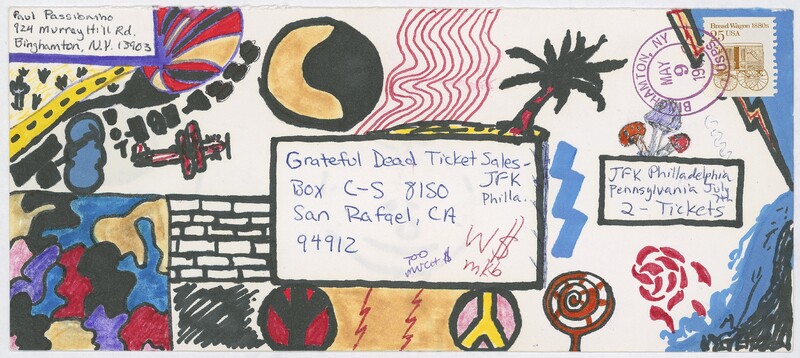 Paul Passionino
924 Murray Hill Rd.
Binghamton, N.Y. 13903
Bread Wagon 1880s
25 USA
BINGHAMTON, NY
MAY
9
19
USPS
Grateful Dead Ticket Sales-
JFK
Philla.
Box C-S 8150
San Rafael, CA
94912
TOO
MUCH $
W$
mkb
JFK Philladelphia
Pennsylvania July
7th
2 - Tickets